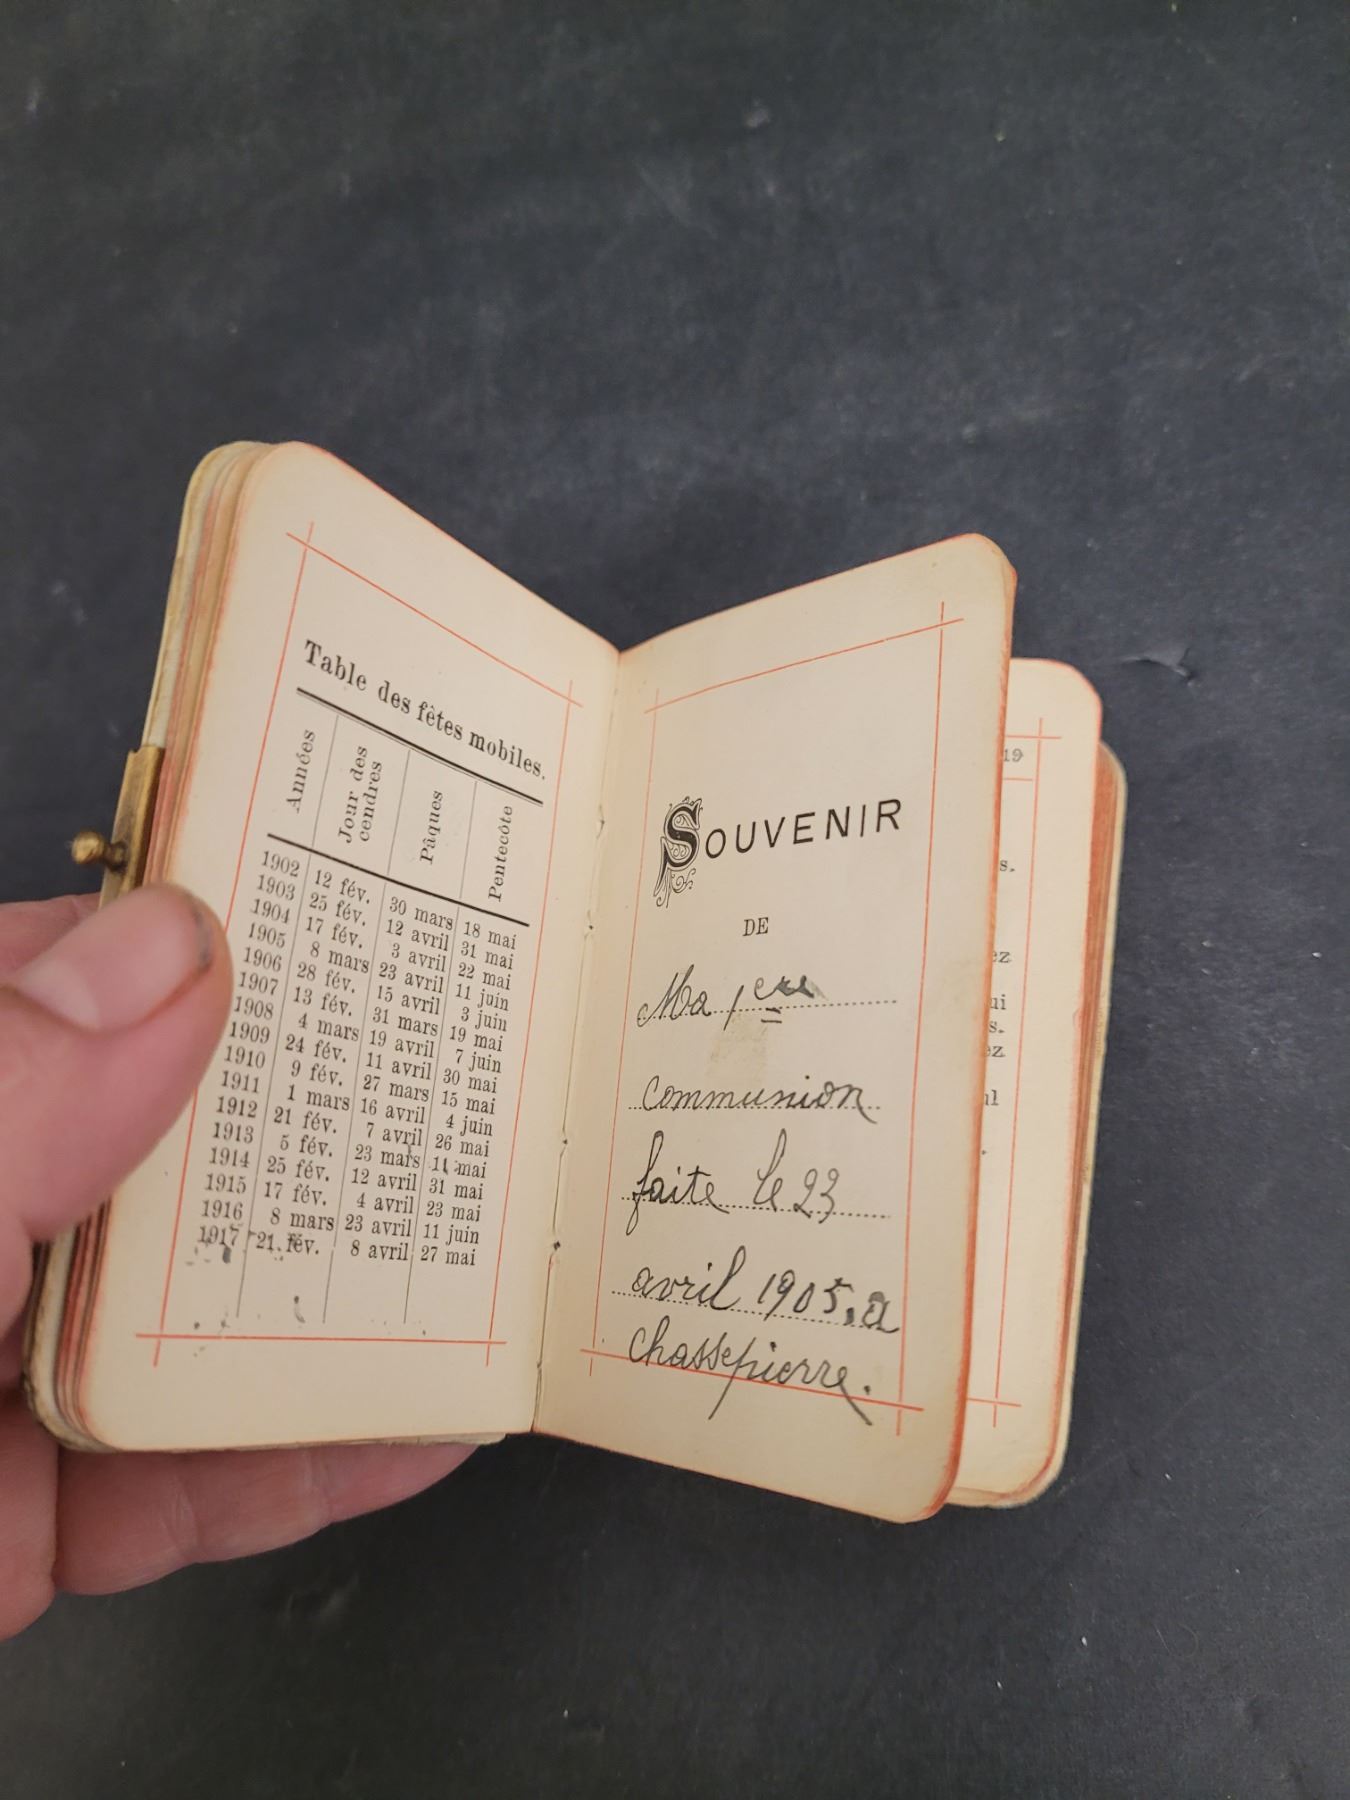 Table des fêtes mobiles.
Années Jour des cendres Pâques Pentecôte
1902 12 fév. 30 mars 18 mai
1903 25 fév. 12 avril 31 mai
1904 17 fév. 3 avril 22 mai
1905 8 mars 23 avril 11 juin
1906 28 fév. 15 avril 3 juin
1907 13 fév. 31 mars 19 mai
1908 4 mars 19 avril 7 juin
1909 24 fév. 11 avril 30 mai
1910 9 fév. 27 mars 15 mai
1911 1 mars 16 avril 4 juin
1912 21 fév. 7 avril 26 mai
1913 5 fév. 23 mars 11 mai
1914 25 fév. 12 avril 31 mai
1915 17 fév. 4 avril 23 mai
1916 8 mars 23 avril 11 juin
1917 21 fév. 8 avril 27 mai
SOUVENIR
DE
Ma 1ere
communion
faite le 23
avril 1905. a
chassepierre.
19
s.
ez
ui
s.
ez